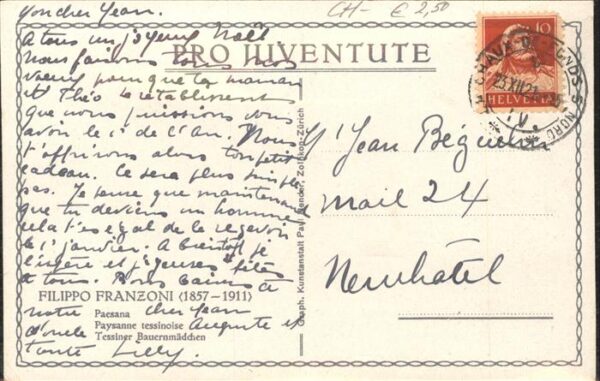 Mon cher Jean.
CH- € 2,50
A tous un joyeux Noël
PRO JUVENTUTE
Nous faisons tous nos
vœux pour que ta maman
et Théo se rétablissent
que nous puissions vous
avoir le 1er de l'An. Nous
t'offrirons alors ton petit
cadeau. Ce sera plus simple
pas. Je pense que maintenant
que tu deviens un homme
cela t'est égal de le recevoir
le 1er janvier. A bientôt je
l'espère et joyeuses fêtes
à tous. Bons baisers à
FILIPPO FRANZONI (1857-1911)
notre cher Jean
Paesana
Paysanne tessinoise
Tessiner Bauernmädchen
d'oncle Auguste et
tante Lilly.
Graph. Kunstanstalt Paul Bender, Zollikon-Zürich
10
HELVETIA
LA CHAUX-DE-FONDS
NORD
23.XII.21
Jean Béguin
Mail 24
Neuchatel